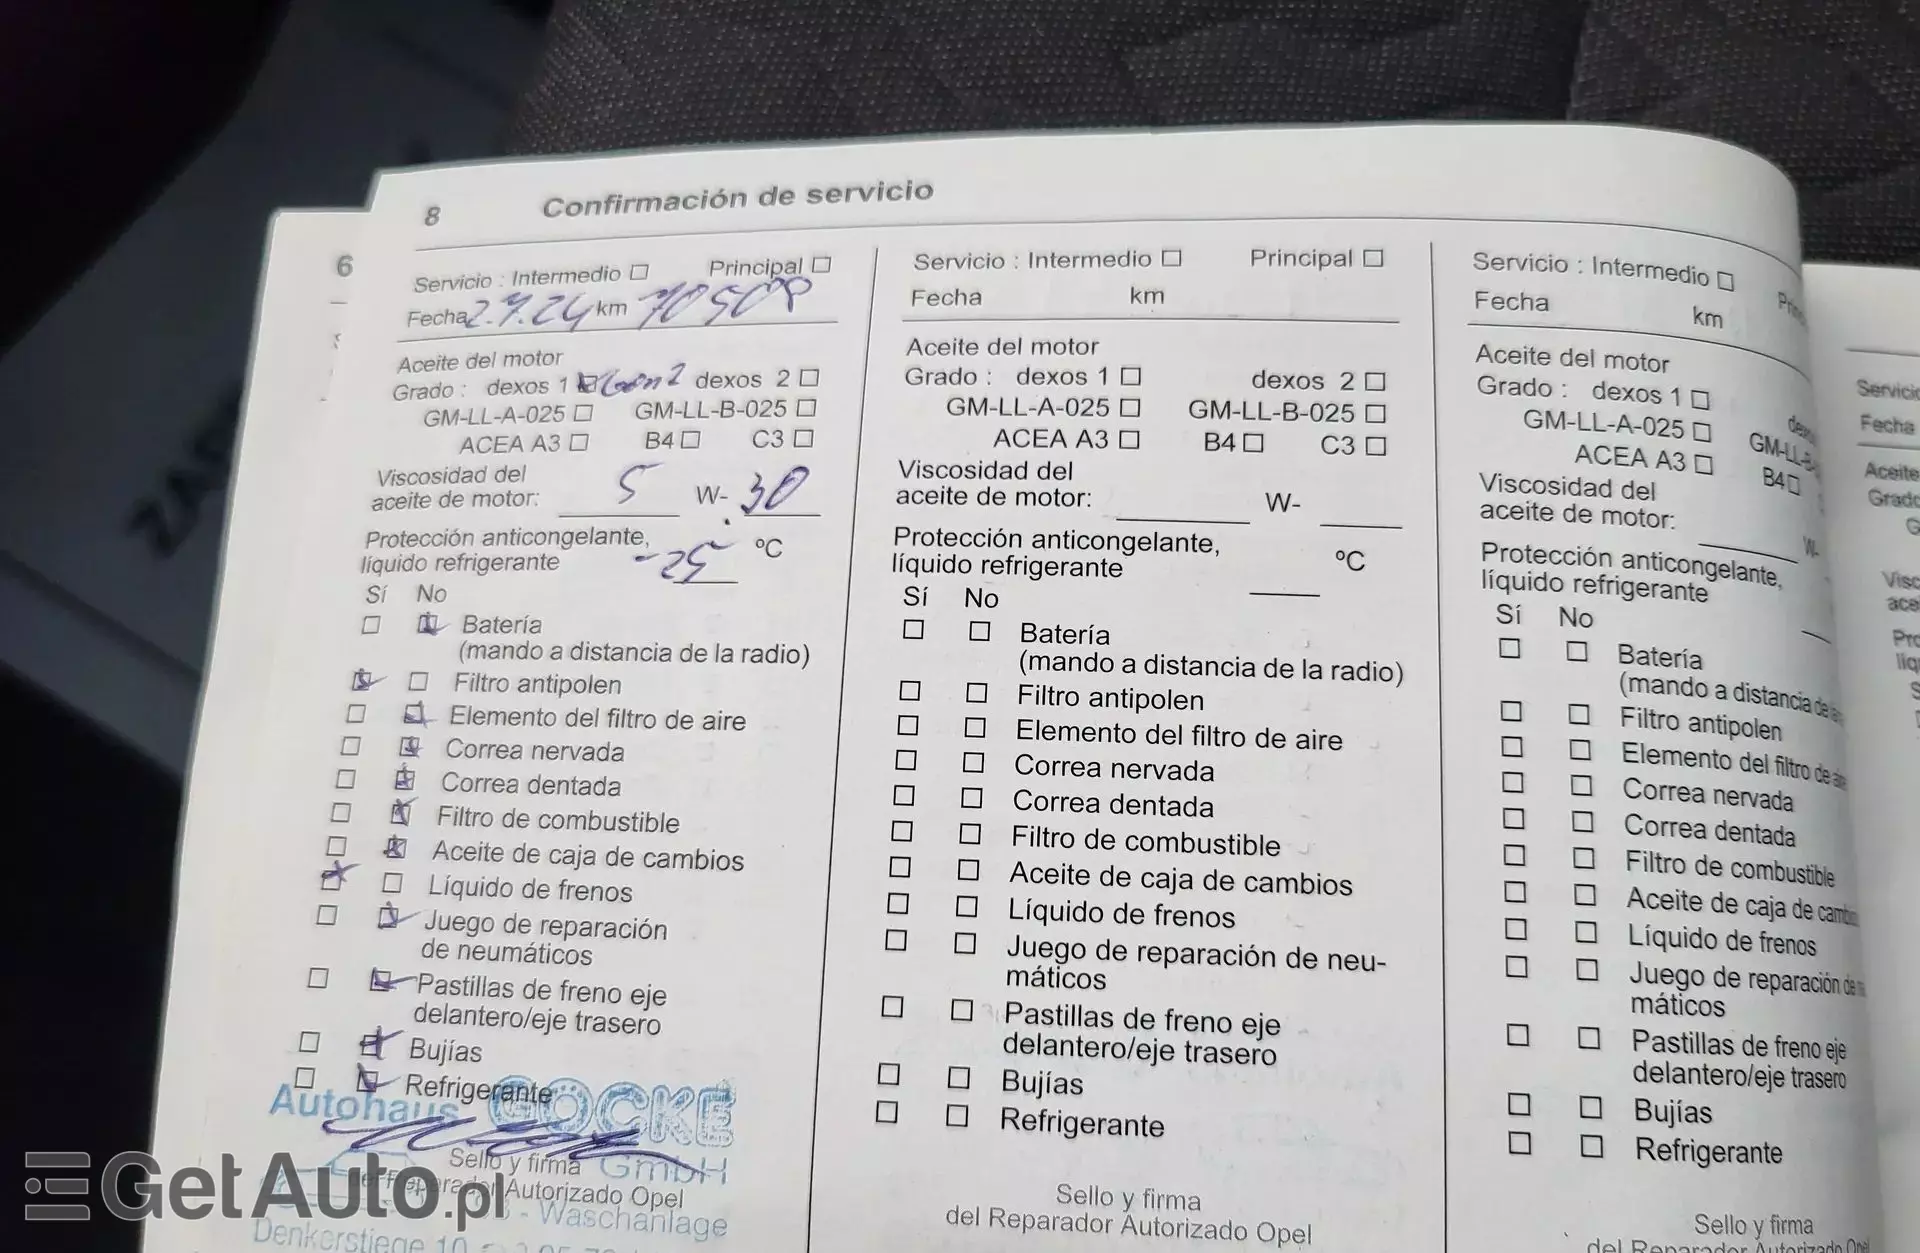 8 Confirmación de servicio
6
Servicio : Intermedio Principal
Fecha 2.7.24 km 70508
Aceite del motor
Grado : dexos 1 Gen 2 dexos 2
GM-LL-A-025 GM-LL-B-025
ACEA A3 B4 C3
Viscosidad del
aceite de motor: 5 W- 30
Protección anticongelante,
líquido refrigerante -25 ºC
Sí No
Batería
(mando a distancia de la radio)
Filtro antipolen
Elemento del filtro de aire
Correa nervada
Correa dentada
Filtro de combustible
Aceite de caja de cambios
Líquido de frenos
Juego de reparación
de neumáticos
Pastillas de freno eje
delantero/eje trasero
Bujías
Refrigerante
Autohaus GÖCKE
GmbH
Sello y firma
Autorizado Opel
- Waschanlage
Denkerstiege 10
Servicio : Intermedio Principal
Fecha km
Aceite del motor
Grado : dexos 1 dexos 2
GM-LL-A-025 GM-LL-B-025
ACEA A3 B4 C3
Viscosidad del
aceite de motor: W-
Protección anticongelante,
líquido refrigerante ºC
Sí No
Batería
(mando a distancia de la radio)
Filtro antipolen
Elemento del filtro de aire
Correa nervada
Correa dentada
Filtro de combustible
Aceite de caja de cambios
Líquido de frenos
Juego de reparación de neu-
máticos
Pastillas de freno eje
delantero/eje trasero
Bujías
Refrigerante
Sello y firma
del Reparador Autorizado Opel
Servicio : Intermedio
Fecha km
Aceite del motor
Grado : dexos 1
GM-LL-A-025 GM-LL-B-
ACEA A3 B4
Viscosidad del
aceite de motor: W-
Protección anticongelante,
líquido refrigerante
Sí No
Batería
(mando a distancia de la
Filtro antipolen
Elemento del filtro de aire
Correa nervada
Correa dentada
Filtro de combustible
Aceite de caja de
Líquido de frenos
Juego de reparación de
máticos
Pastillas de freno eje
delantero/eje trasero
Bujías
Refrigerante
Sello y firma
del Reparador Autorizado Opel
Servicio
Fecha
Aceite
Grado
GetAuto.pl